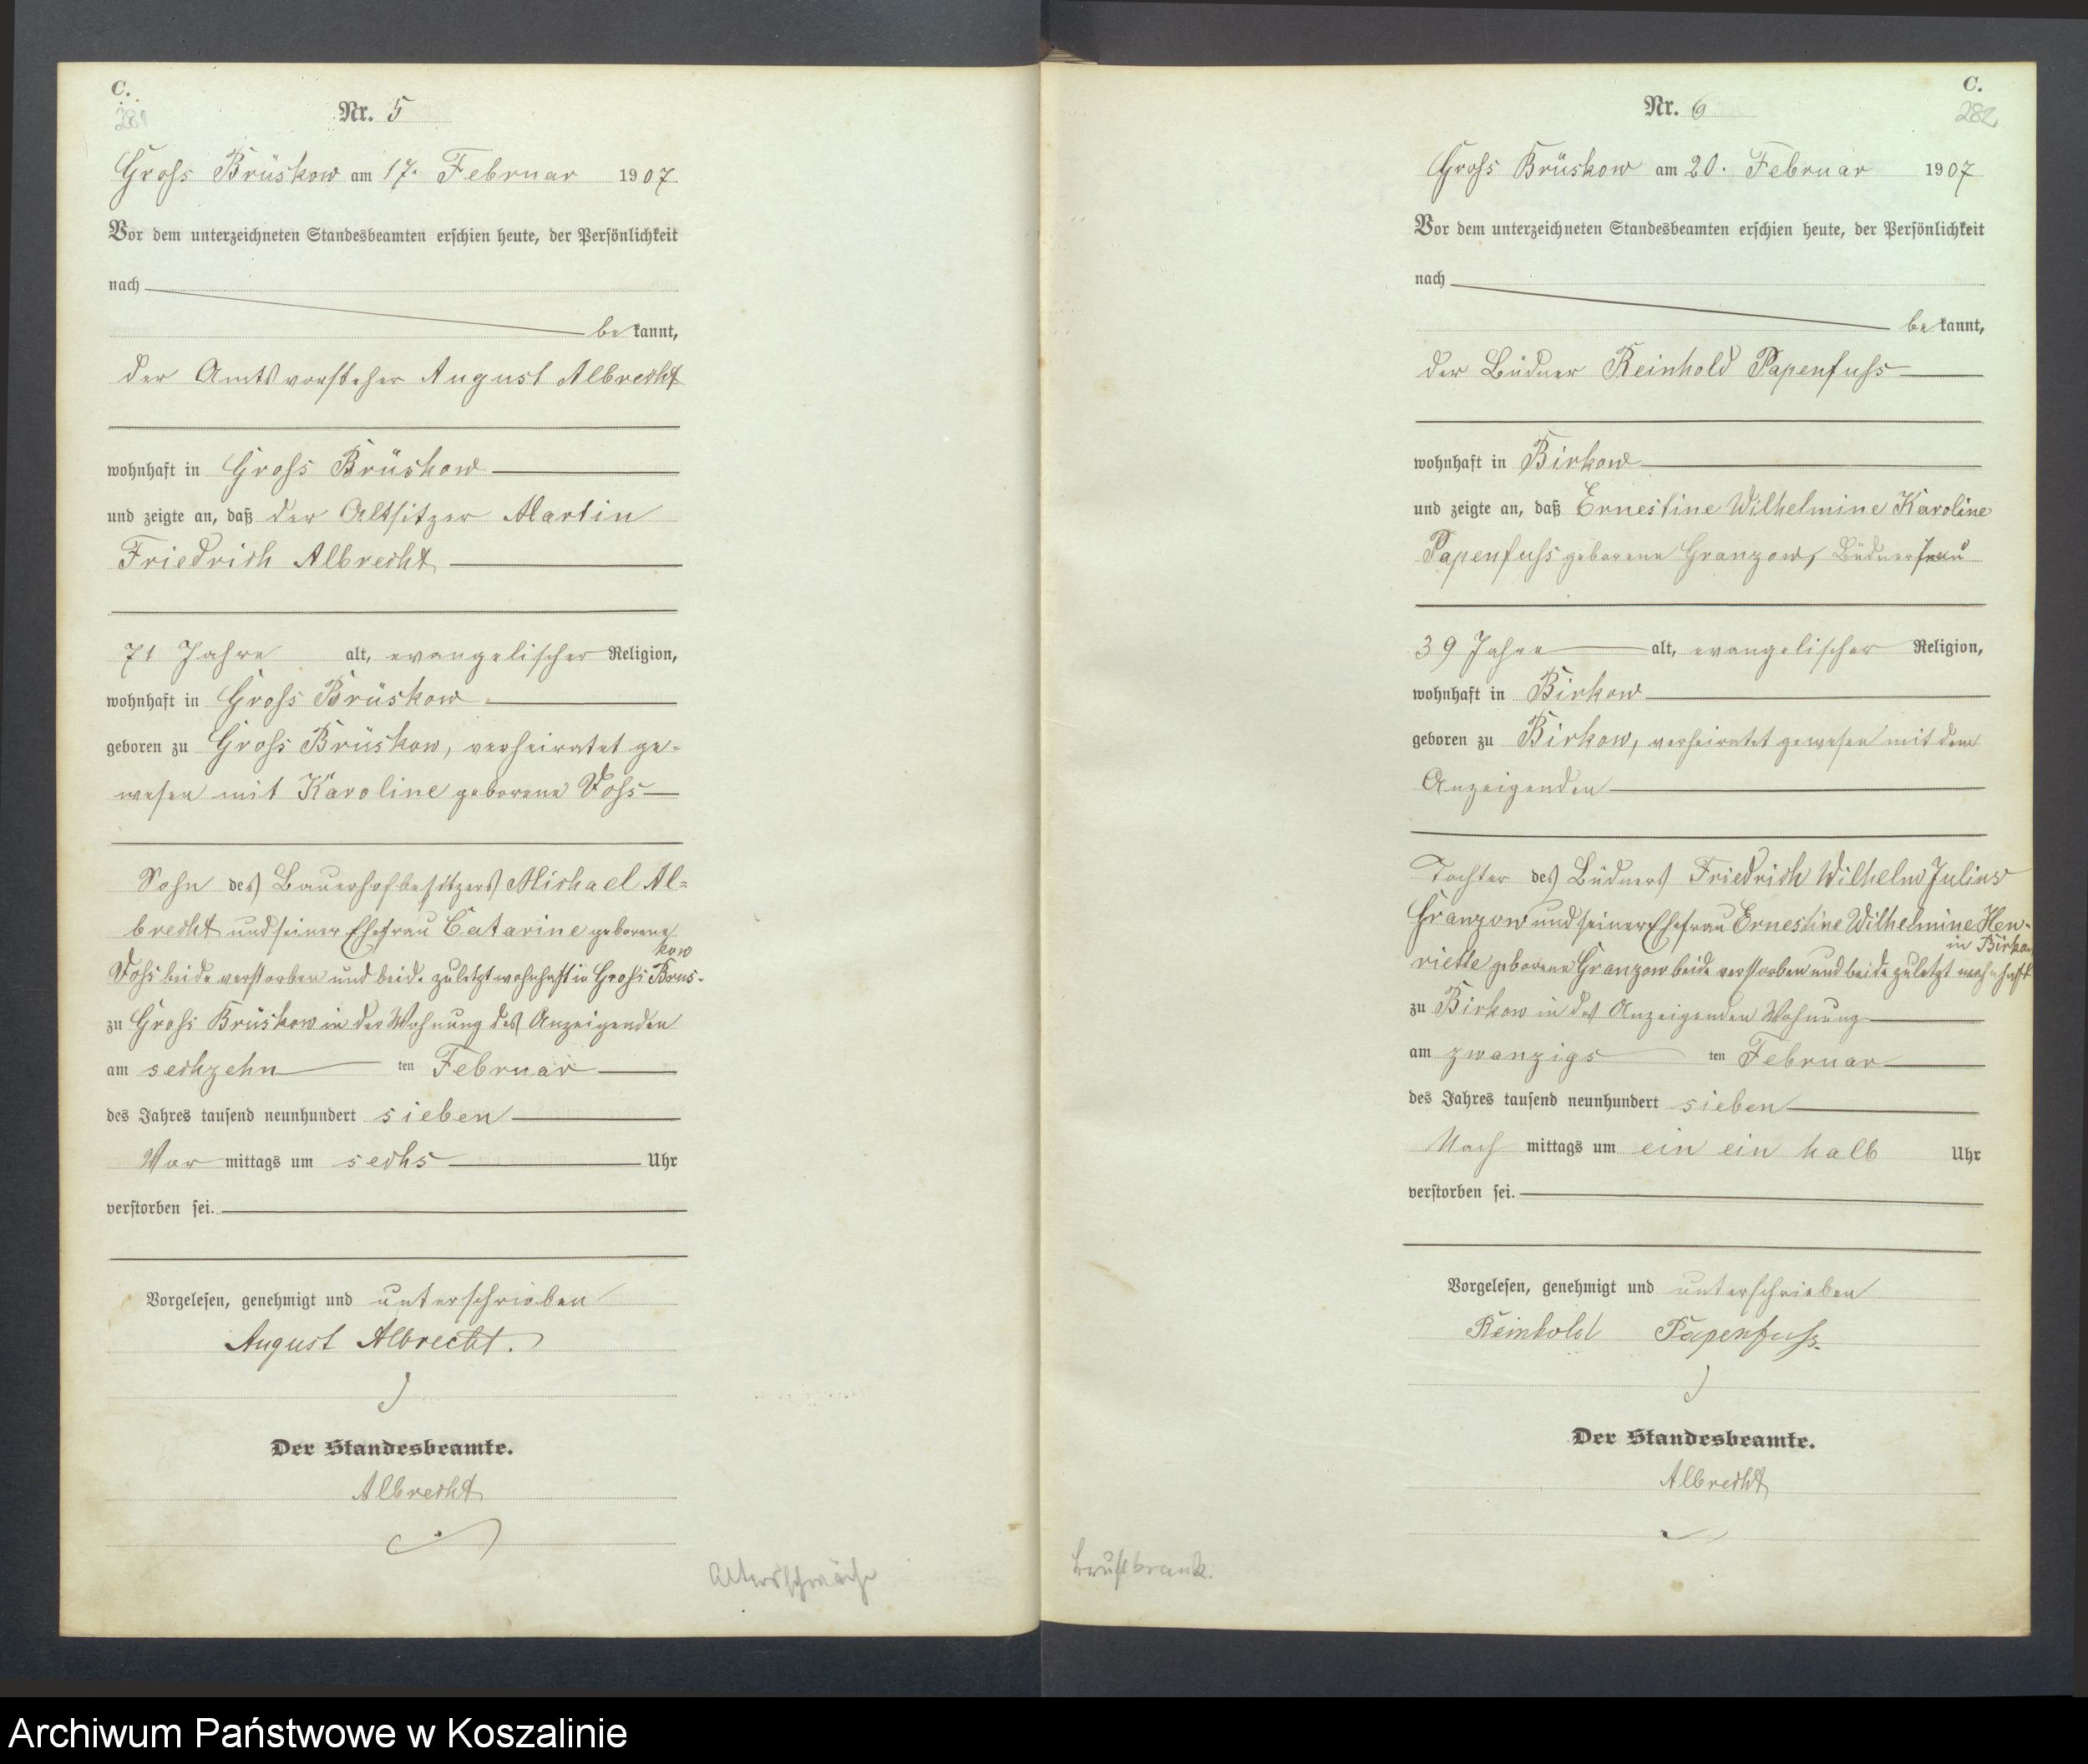 C.
281
Nr. 5
Gross Brüskow am 17. Februar 1907
Vor dem unterzeichneten Standesbeamten erschien heute, der Persönlichkeit
nach
bekannt,
der Amtsvorsteher August Albrecht
wohnhaft in Gross Brüskow
und zeigte an, daß der Altsitzer Martin
Friedrich Albrecht
71 Jahre alt, evangelischer Religion,
wohnhaft in Gross Brüskow
geboren zu Gross Brüskow, verheiratet ge-
wesen mit Karoline geborene Voss
Sohn des Bauerhofbesitzers Michael Al-
brecht und seiner Ehefrau Catarine geborene
kow
Voss beide verstorben und beide zuletzt wohnhaft in Gross Brüs-
zu Gross Brüskow in der Wohnung des Anzeigenden
am sechzehnten Februar
des Jahres tausend neunhundert sieben
Vormittags um sechs Uhr
verstorben sei.
Vorgelesen, genehmigt und unterschrieben
August Albrecht.
Der Standesbeamte.
Albrecht
Altersschwäche
C.
282
Nr. 6
Gross Brüskow am 20. Februar 1907
Vor dem unterzeichneten Standesbeamten erschien heute, der Persönlichkeit
nach
bekannt,
der Büdner Reinhold Papenfuss
wohnhaft in Birkow
und zeigte an, daß Ernestine Wilhelmine Karoline
Papenfuss geborene Granzow, Büdnerfrau
39 Jahre alt, evangelischer Religion,
wohnhaft in Birkow
geboren zu Birkow, verheiratet gewesen mit dem
Anzeigenden
Tochter des Büdners Friedrich Wilhelm Julius
Granzow und seiner Ehefrau Ernestine Wilhelmine Hen-
in Birkow
riette geborene Granzow beide verstorben und beide zuletzt wohnhaft
zu Birkow in des Anzeigenden Wohnung
am zwanzigsten Februar
des Jahres tausend neunhundert sieben
Nachmittags um ein ein halb Uhr
verstorben sei.
Vorgelesen, genehmigt und unterschrieben
Reinhold Papenfuss.
Der Standesbeamte.
Albrecht
brustkrank.
Archiwum Państwowe w Koszalinie